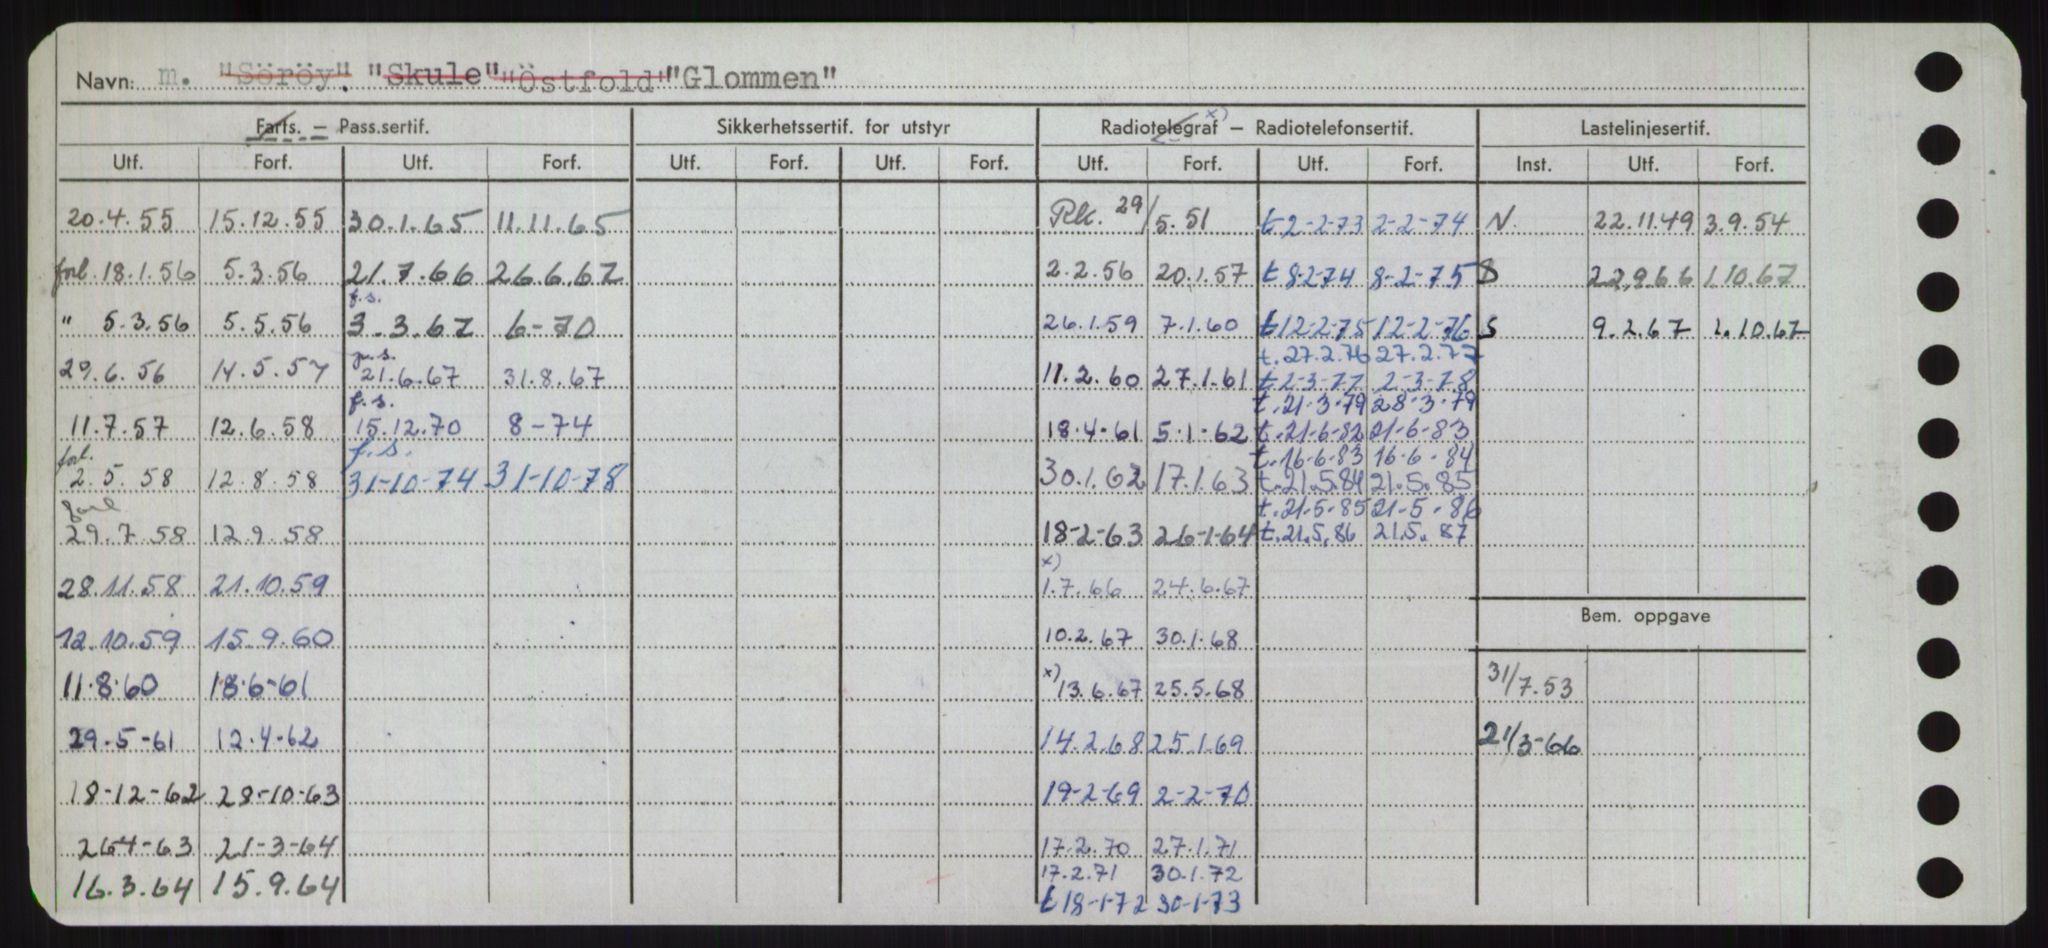 Navn: m. "Söröy". "Skule" "Östfold" "Glommen"
Farts. — Pass.sertif. Sikkerhetssertif. for utstyr Radiotelegraf — Radiotelefonsertif. x) Lastelinjesertif.
Utf. Forf. Utf. Forf. Utf. Forf. Utf. Forf. Utf. Forf. Utf. Forf. Inst. Utf. Forf.
20.4.55 15.12.55 30.1.65 11.11.65 29/5.51 t 2-2-73 2-2-74 N. 22.11.49 3.9.54
forl. 18.1.56 5.3.56 21.7.66 26.6.67 2.2.56 20.1.57 t 8-2-74 8-2-75 B 22.9.66 1.10.67
f.s.
" 5.3.56 5.5.56 3.3.67 6-70 26.1.59 7.1.60 t 12-2-75 12-2-76 S 9.2.67 1.10.67
p.s. t. 27.2.76 27.2.77
29.6.56 14.5.57 21.6.67 31.8.67 11.2.60 27.1.61 t 2-3-77 2-3-78
f.s. t. 21.3.79 28.3.79
11.7.57 12.6.58 15.12.70 8-74 18.4.61 5.1-62 t. 21-6-82 21-6-83
forl. f.s. t. 16-6-83 16-6-84
2.5.58 12.8.58 31-10-74 31-10-78 30.1.62 17.1.63 t. 21.5.84 21.5.85
forl t. 21-5-85 21-5-86
29.7.58 12.9.58 18-2-63 26-1-64 t. 21.5.86 21.5.87
x)
28.11.58 21.10.59 1.7.66 24.6.67
Bem. oppgave
12.10.59 15.9.60 10.2.67 30.1.68
11.8.60 18.6-61 x) 13.6.67 25.5.68 31/7.53
29.5-61 12.4-62 14.2.68 25.1.69 21/3-66
18-12-62 28-10-63 19-2-69 2-2-70
26.4-63 21-3-64 17.2.70 27.1.71
17.2.71 30.1.72
16.3.64 15.9.64 t 18-1-72 30-1-73